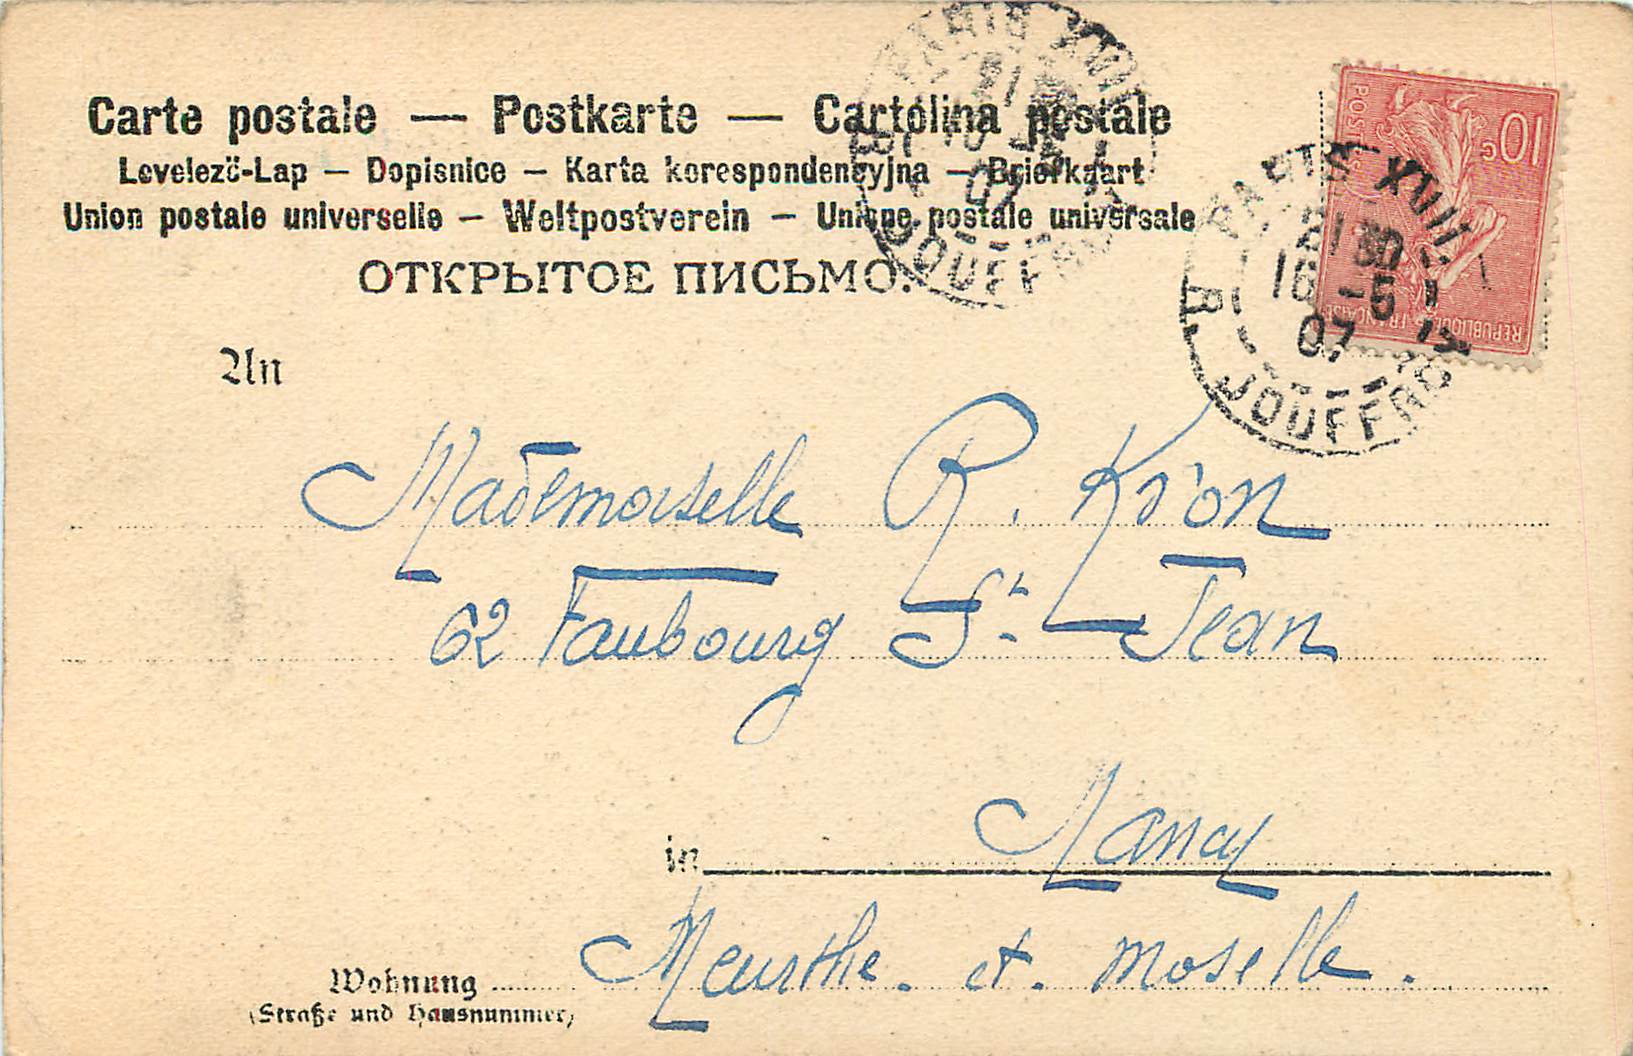 Carte postale — Postkarte — Cartolina postale
Levelező-Lap — Dopisnice — Karta korespondencyjna — Briefkaart
Union postale universelle — Weltpostverein — Unione postale universale
ОТКРЫТОЕ ПИСЬМО.
PARIS XVII
16 -5
07
R. JOUFFROY
PARIS XVII
1830
16 -5
07
R. JOUFFROY
10c
POSTES
REPUBLIQUE FRANCAISE
An
Mademoiselle R. Krion
62 Faubourg St Jean
in Nancy
Meurthe. et. Moselle.
Wohnung
(Straße und Hausnummer)